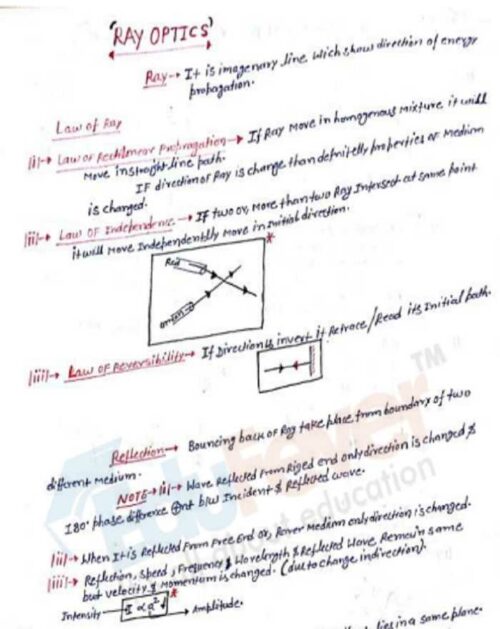 'RAY OPTICS'
Ray → It is imagenary line wich show direction of energy
propagation.
Law of Ray
(i)→ Law of Rectilinear Propagation → If Ray Move in homogenous mixture it will
Move in straight line path.
IF direction of Ray is change than definitelly properties of Medium
is changed.
(ii)→ Law OF Independence → IF two or, More than two Ray Intersect at same Point
it will Move Independentlly Move in Initial direction.
Red
(iii)→ Law OF Reversibility → If Direction is invert it Retrace/Read its Initial path.
TM
Edufever
all about education
Reflection → Bouncing back of Ray take place from boundary of two
different Medium.
NOTE → (i)→ Wave Reflected From Riged end only direction is changed &
180° phase difference b/w Incident & Reflected wave.
(ii)→ When It is Reflected From Free End or, Rarer Medium only direction is changed.
(iii)→ Reflection, Speed, Frequency & Wavelength & Reflected Wave Remain same
but velocity & Momentum is changed. (due to change in direction).
Intensity ← I ∝ a² → Amplitude.
lies in a same plane.